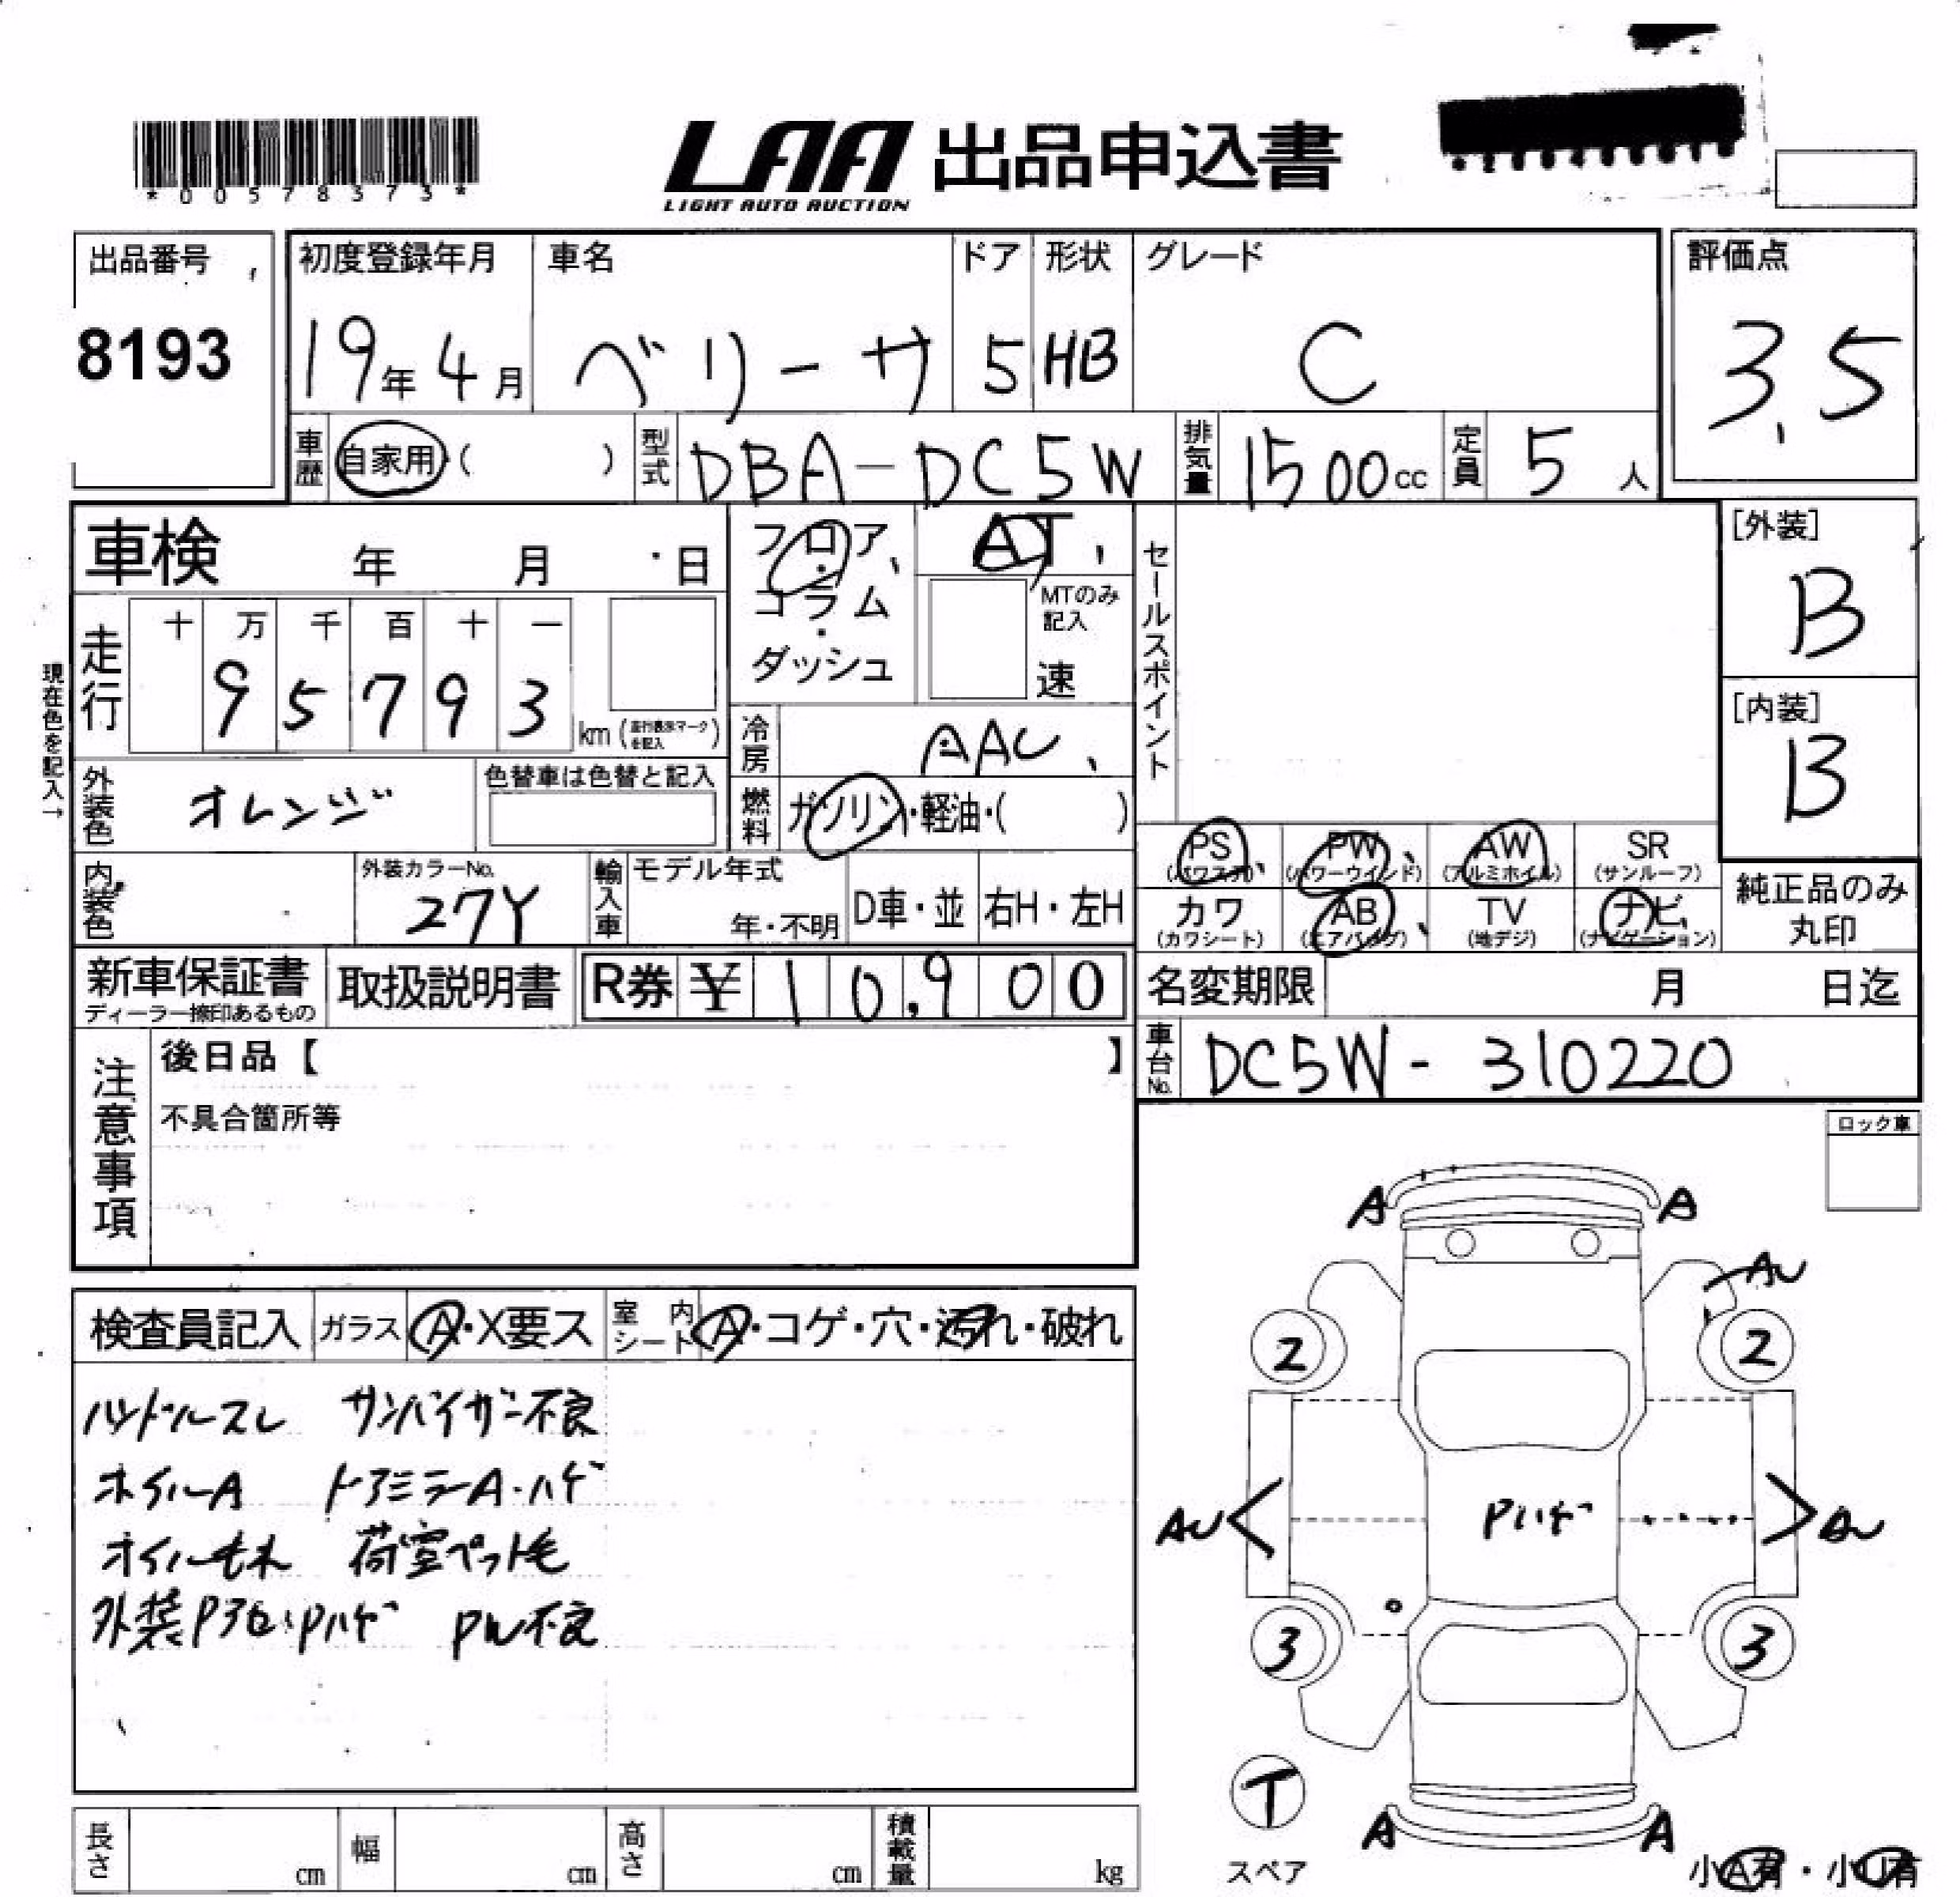 *00578373*
LAA 出品申込書
LIGHT AUTO AUCTION
出品番号 8193
初度登録年月 19年4月
車名 ベリーサ
ドア 5
形状 HB
グレード C
評価点 3.5
車歴 自家用・( )
型式 DBA-DC5W
排気量 1500cc
定員 5人
車検 年 月 日
フロア・コラム・ダッシュ
AT
MTのみ記入 速
セールスポイント
[外装] B
[内装] B
現在色を記入→
走行 十 万 千 百 十 一
9 5 7 9 3 km(走行表示マークを記入)
冷房 AAC
外装色 オレンジ
色替車は色替と記入
燃料 ガソリン・軽油・( )
PS (パワステ) PW (パワーウインド) AW (アルミホイル) SR (サンルーフ)
内装色
外装カラーNo. 27Y
輸入車 モデル年式 年・不明 D車・並 右H・左H
カワ (カワシート) AB (エアバッグ) TV (地デジ) ナビ (ナビゲーション)
純正品のみ丸印
新車保証書 ディーラー捺印あるもの
取扱説明書
R券 ¥ 10,900
名変期限 月 日迄
車台No. DC5W-310220
注意事項
後日品【 】
不具合箇所等
ロック車
検査員記入 ガラス A・X要ス 室内シート A・コゲ・穴・汚れ・破れ
ハンドルスレ サンバイザー不良
ホイルA ドアミラーA・ハゲ
オイルモレ 荷室ペット毛
外装Pヌセ・Pハゲ PW不良
A A
AU
2 2
AU Pハゲ AU
3 3
T
A A
スペア
小A有・小U有
長さ cm 幅 cm 高さ cm 積載量 kg